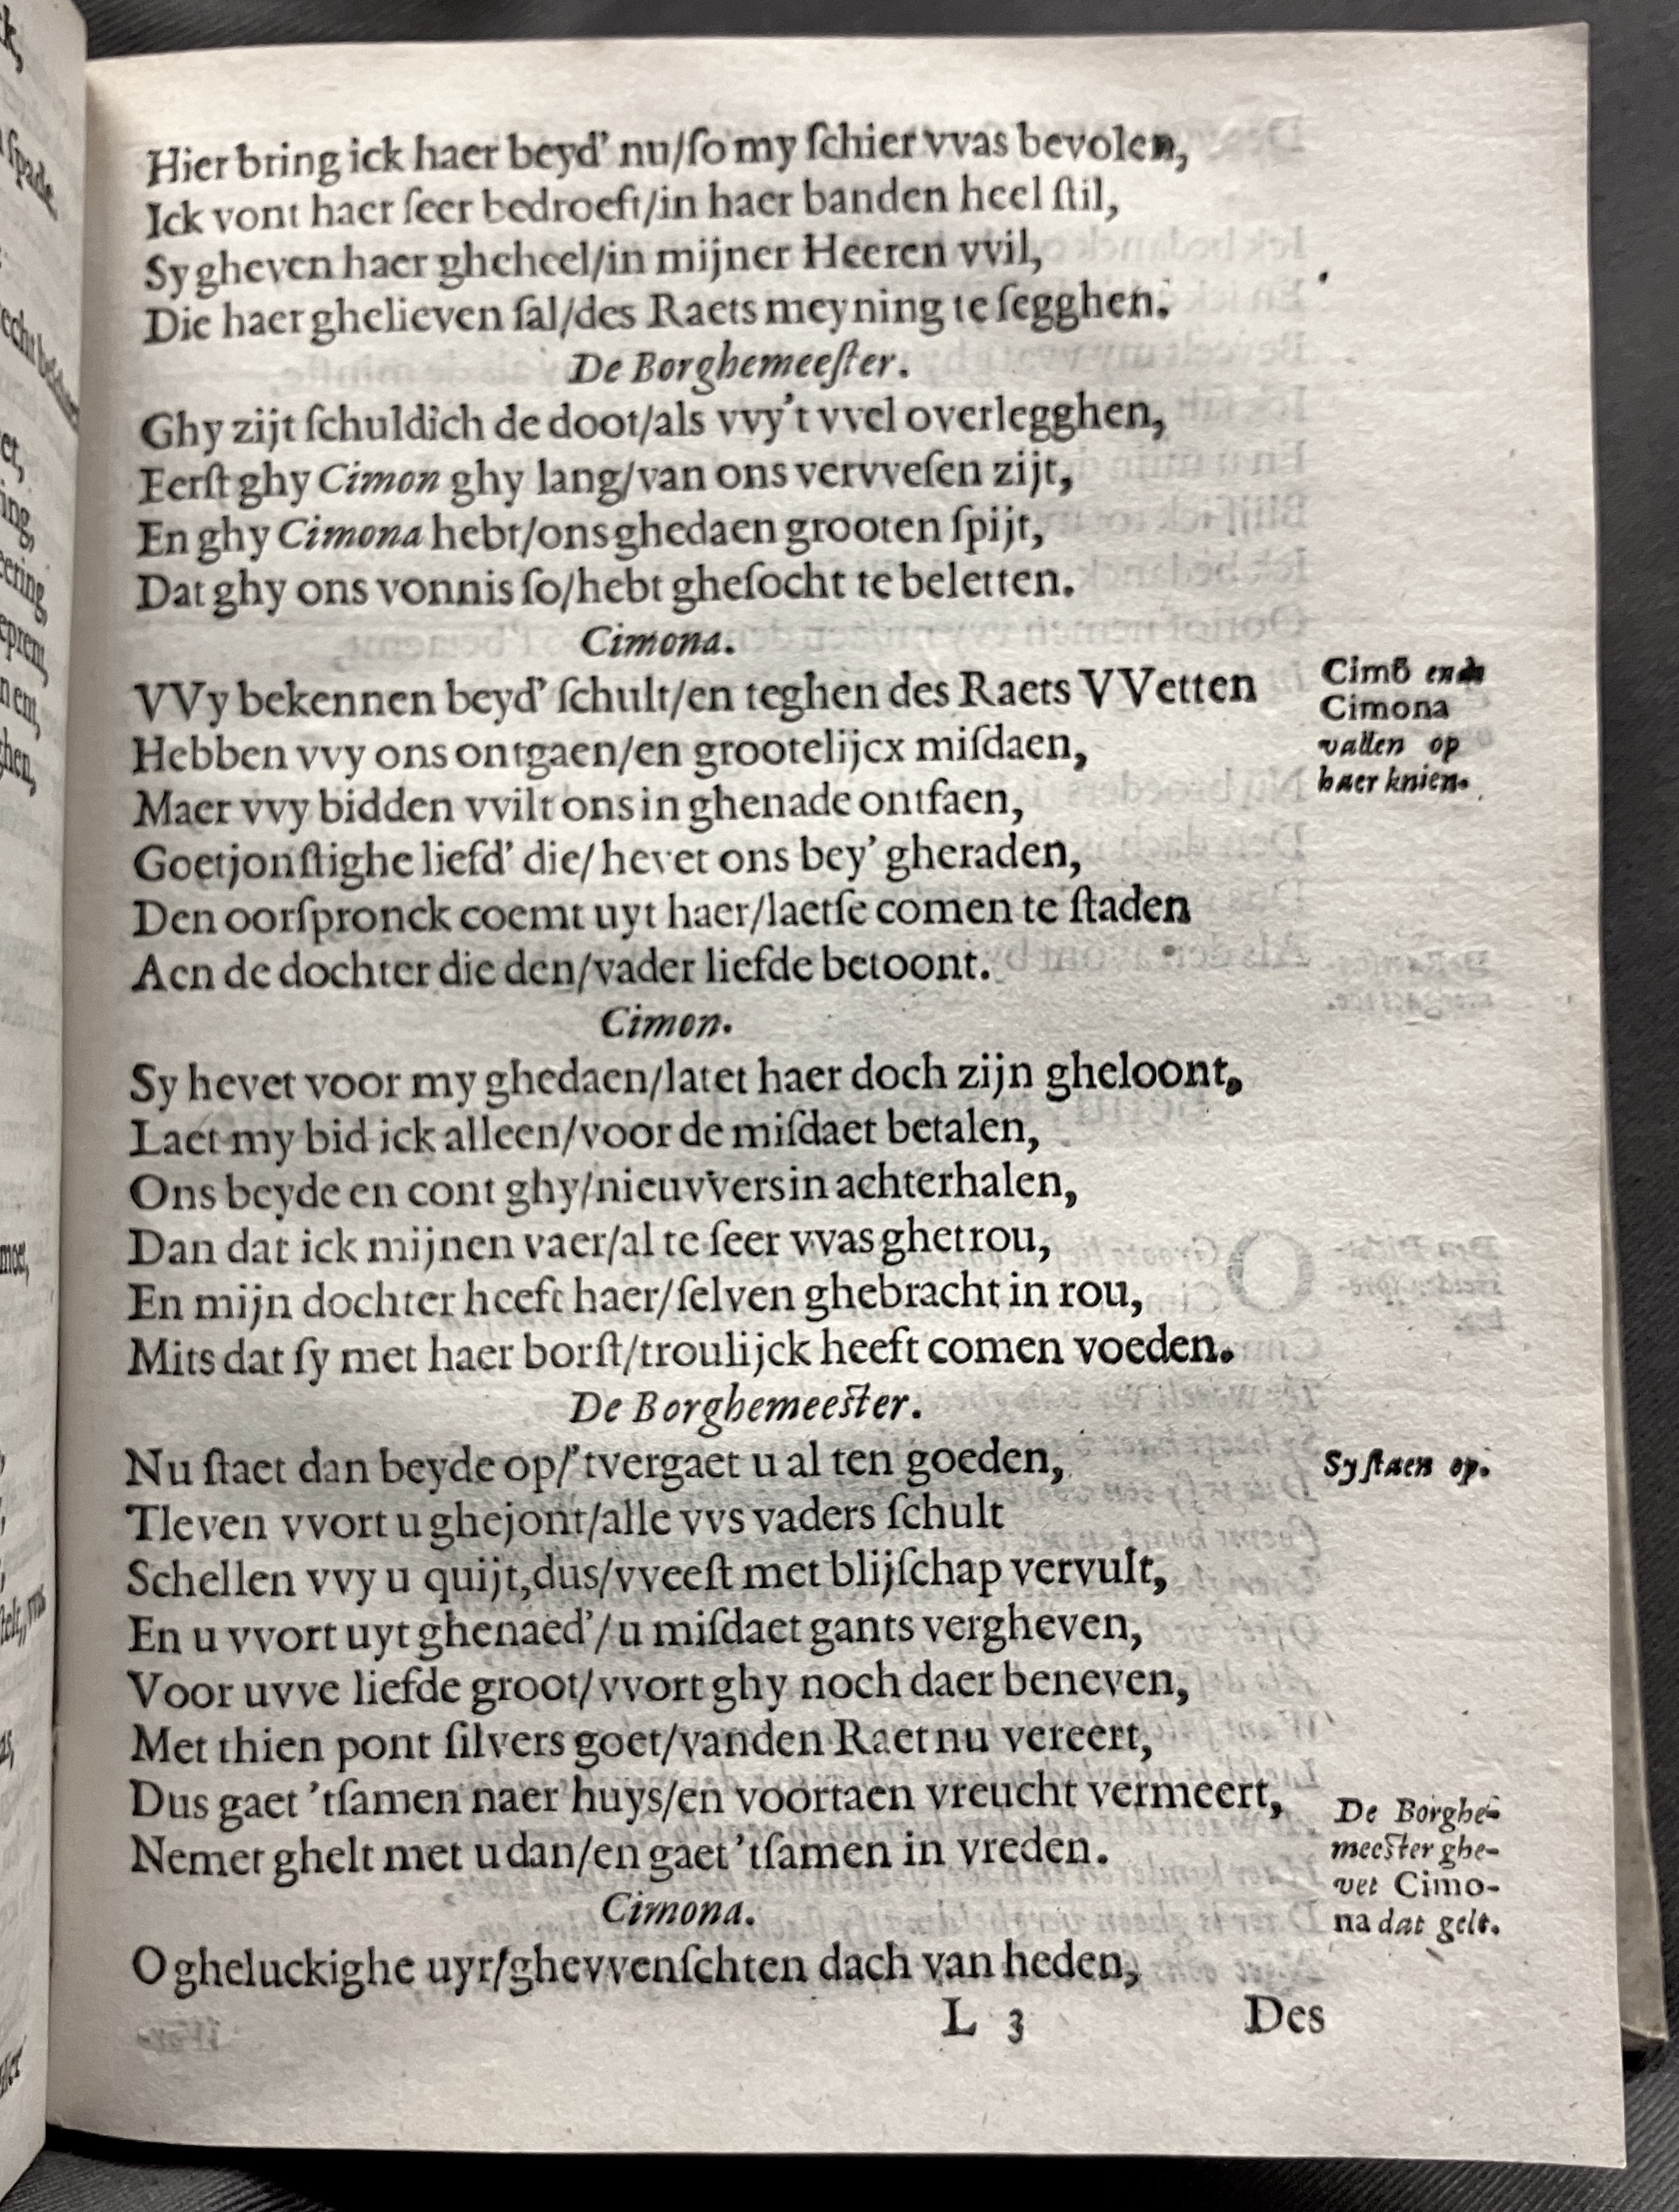 Hier bring ick haer beyd' nu/ſo my ſchier vvas bevolen,
Ick vont haer ſeer bedroeft/in haer banden heel ſtil,
Sy gheven haer gheheel/in mijner Heeren vvil,
Die haer ghelieven ſal/des Raets meyning te ſegghen.
De Borghemeeſter.
Ghy zijt ſchuldich de doot/als vvy't vvel overlegghen,
Eerſt ghy Cimon ghy lang/van ons vervveſen zijt,
En ghy Cimona hebt/ons ghedaen grooten ſpijt,
Dat ghy ons vonnis ſo/hebt gheſocht te beletten.
Cimona.
VVy bekennen beyd' ſchult/en teghen des Raets VVetten
Hebben vvy ons ontgaen/en grootelijcx miſdaen,
Maer vvy bidden vvilt ons in ghenade ontfaen,
Goetjonſtighe liefd' die/hevet ons bey' gheraden,
Den oorſpronck coemt uyt haer/laetſe comen te ſtaden
Aen de dochter die den/vader liefde betoont.
Cimõ ende
Cimona
vallen op
haer knien.
Cimon.
Sy hevet voor my ghedaen/latet haer doch zijn gheloont,
Laet my bid ick alleen/voor de miſdaet betalen,
Ons beyde en cont ghy/nieuvvers in achterhalen,
Dan dat ick mijnen vaer/al te ſeer vvas ghetrou,
En mijn dochter heeft haer/ſelven ghebracht in rou,
Mits dat ſy met haer borſt/troulijck heeft comen voeden.
De Borghemeeſter.
Nu ſtaet dan beyde op/'tvergaet u al ten goeden,
Sy ſtaen op.
Tleven vvort u ghejont/alle vvs vaders ſchult
Schellen vvy u quijt,dus/vveeſt met blijſchap vervult,
En u vvort uyt ghenaed'/u miſdaet gants vergheven,
Voor uvve liefde groot/vvort ghy noch daer beneven,
Met thien pont ſilvers goet/vanden Raet nu vereert,
Dus gaet 'tſamen naer huys/en voortaen vreucht vermeert,
Nemet ghelt met u dan/en gaet 'tſamen in vreden.
De Borghe-
meeſter ghe-
vet Cimo-
na dat gelt.
Cimona.
O gheluckighe uyr/ghevvenſchten dach van heden,
L 3 Des